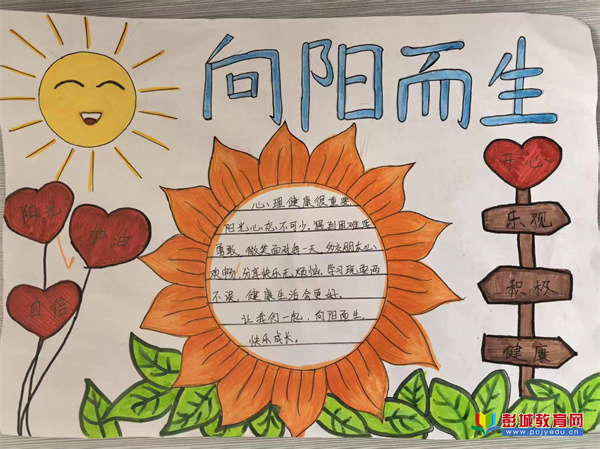 向阳而生
阳光
自信
开心
乐观
积极
健康
心理健康很重要
阳光心态不可少,遇到困难要
勇敢,微笑面对每一天,多交朋友心
欢畅,分享快乐无烦恼,学习玩耍两
不误,健康生活会更好。
让我们一起,向阳而生
快乐成长。
彭城教育网
www.pcjyedu.cn